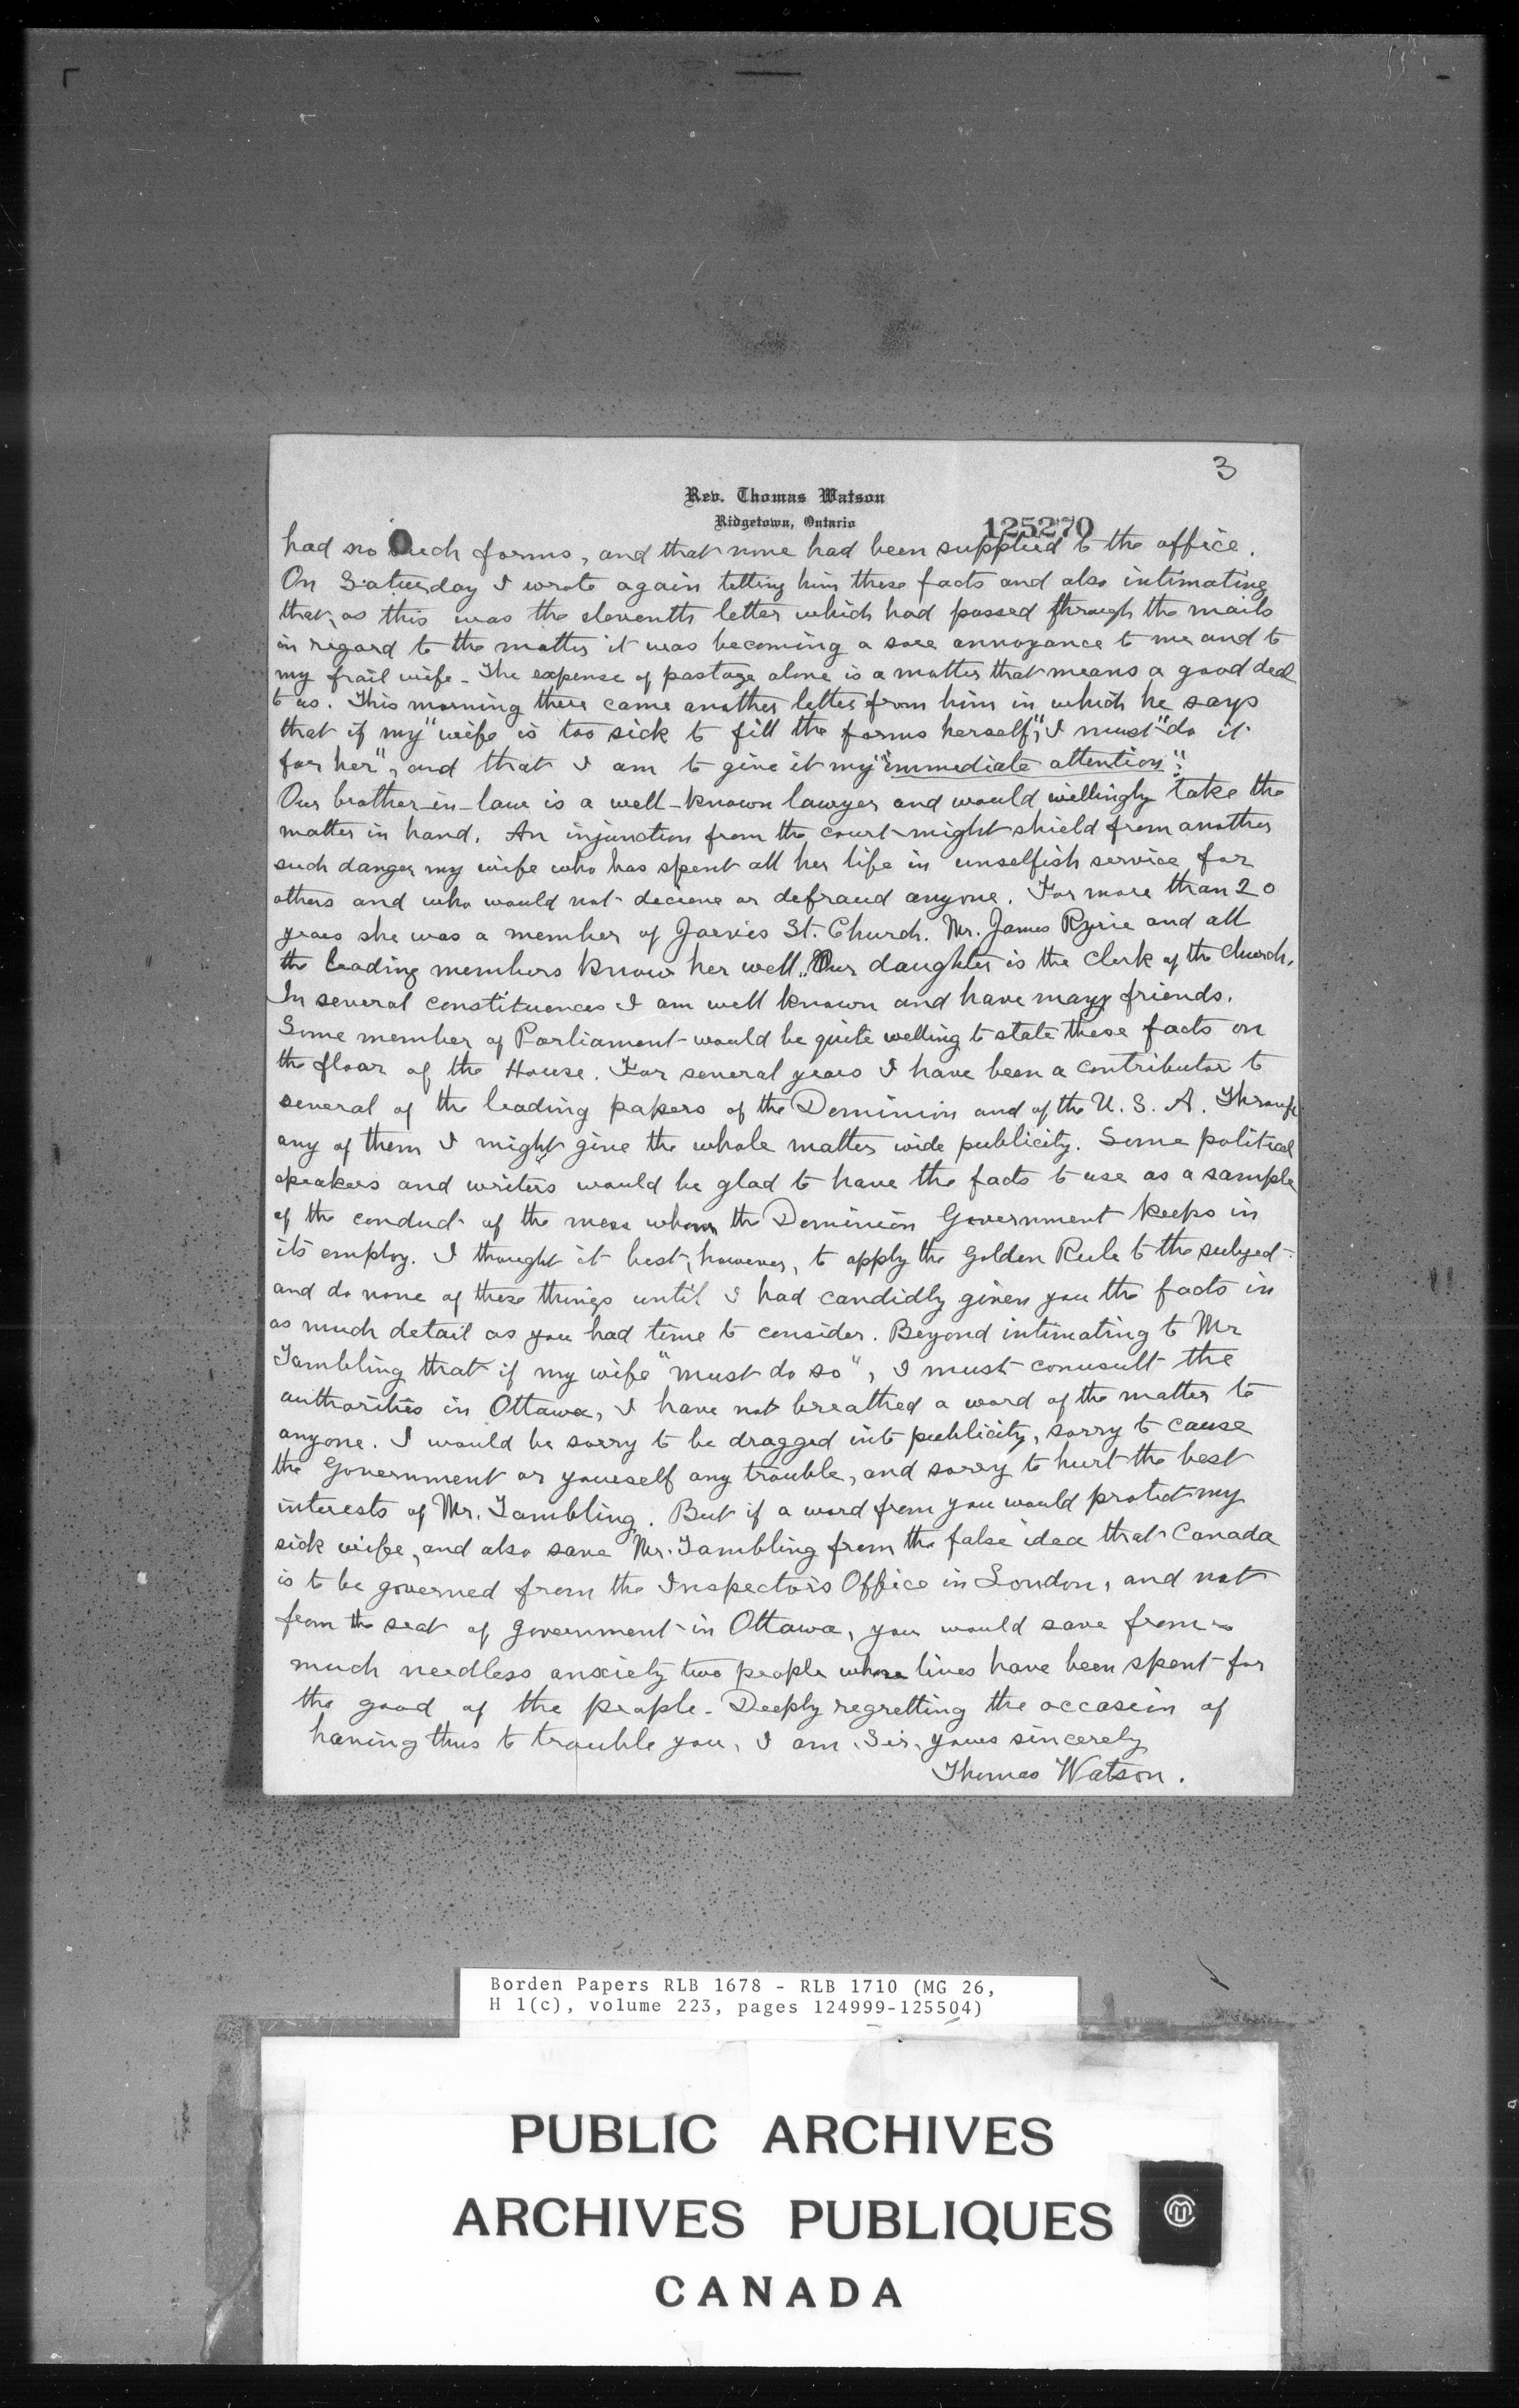 3
Rev. Thomas Watson
Ridgetown, Ontario
125270
had no such forms, and that none had been supplied to the office.
On Saturday I wrote again telling him these facts and also intimating
that, as this was the eleventh letter which had passed through the mails
in regard to the matter it was becoming a sore annoyance to me and to
my frail wife. The expense of postage alone is a matter that means a good deal
to us. This morning there came another letter from him in which he says
that if my "wife is too sick to fill the forms herself," I must "do it
for her", and that I am to give it my "immediate attention".
Our brother-in-law is a well-known lawyer and would willingly take the
matter in hand. An injunction from the court might shield from another
such danger my wife who has spent all her life in unselfish service for
others and who would not deceive or defraud anyone. For more than 20
years she was a member of Jarvis St. Church. Mr. James Ryrie and all
the leading members know her well. Our daughter is the Clerk of the Church.
In several constituences I am well known and have many friends.
Some member of Parliament would be quite willing to state these facts on
the floor of the House. For several years I have been a contributor to
several of the leading papers of the Dominion and of the U. S. A. Through
any of them I might give the whole matter wide publicity. Some political
speakers and writers would be glad to have the facts to use as a sample
of the conduct of the men whom the Dominion Government keeps in
its employ. I thought it best, however, to apply the Golden Rule to the subject
and do none of these things until I had candidly given you the facts in
as much detail as you had time to consider. Beyond intimating to Mr
Tambling that if my wife "must do so", I must conusult the
authorities in Ottawa, I have not breathed a word of the matter to
anyone. I would be sorry to be dragged into publicity, sorry to cause
the Government or yourself any trouble, and sorry to hurt the best
interests of Mr. Tambling. But if a word from you would protect my
sick wife, and also save Mr. Tambling from the false idea that Canada
is to be governed from the Inspector's Office in London, and not
from the seat of government in Ottawa, you would save from
much needless anxiety two people whose lives have been spent for
the good of the people. Deeply regretting the occasion of
having thus to trouble you, I am, Sir, yours sincerely
Thomas Watson.
Borden Papers RLB 1678 - RLB 1710 (MG 26,
H 1(c), volume 223, pages 124999-125504)
PUBLIC ARCHIVES
ARCHIVES PUBLIQUES
CANADA